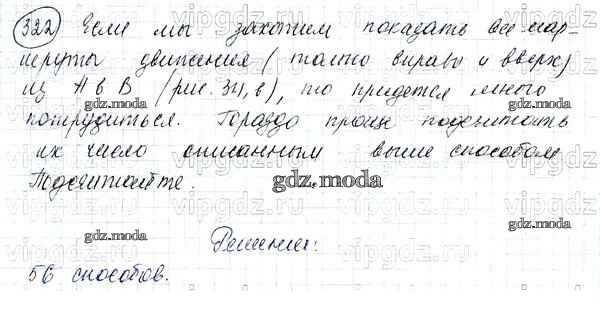 322 Если мы захотим показать все мар-
шруты движения (только вправо и вверх)
из А в В (рис. 34, в), то придется много
потрудиться. Гораздо проще подсчитать
их число описанным выше способом
Подсчитайте.
Решение:
56 способов.
gdz.moda
gdz.moda
gdz.moda
gdz.moda
gdz.moda
gdz.moda
vipgdz.ru